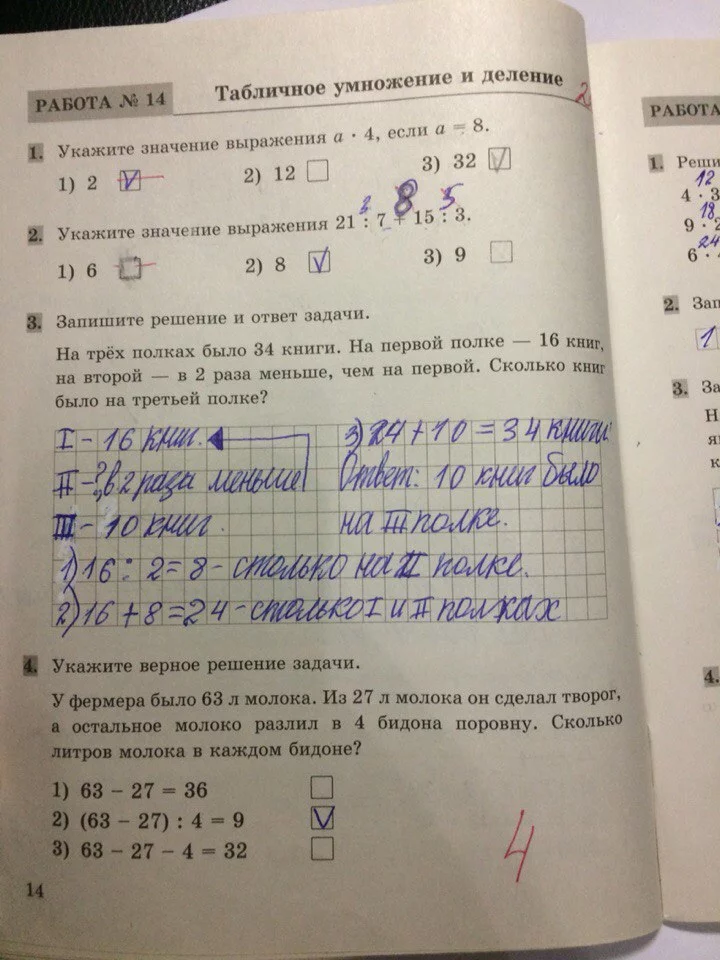 РАБОТА № 14
Табличное умножение и деление
2
1. Укажите значение выражения a · 4, если a = 8.
1) 2 V 2) 12 3) 32 V
3 8 5
2. Укажите значение выражения 21 : 7 + 15 : 3.
1) 6 2) 8 V 3) 9
3. Запишите решение и ответ задачи.
На трёх полках было 34 книги. На первой полке — 16 книг,
на второй — в 2 раза меньше, чем на первой. Сколько книг
было на третьей полке?
I - 16 книг.
II - ?, в 2 раза меньше
III - 10 книг.
1) 16 : 2 = 8 - столько на II полке.
2) 16 + 8 = 24 - столько I и II полках
3) 24 + 10 = 34 книги
Ответ: 10 книг было
на III полке.
4. Укажите верное решение задачи.
У фермера было 63 л молока. Из 27 л молока он сделал творог,
а остальное молоко разлил в 4 бидона поровну. Сколько
литров молока в каждом бидоне?
1) 63 − 27 = 36
2) (63 − 27) : 4 = 9 V
3) 63 − 27 − 4 = 32
4
14
РАБОТА
1. Реши
12
4 · 3
18
9 · 2
24
6 ·
2. Зап
1
3. За
Н
к
4.